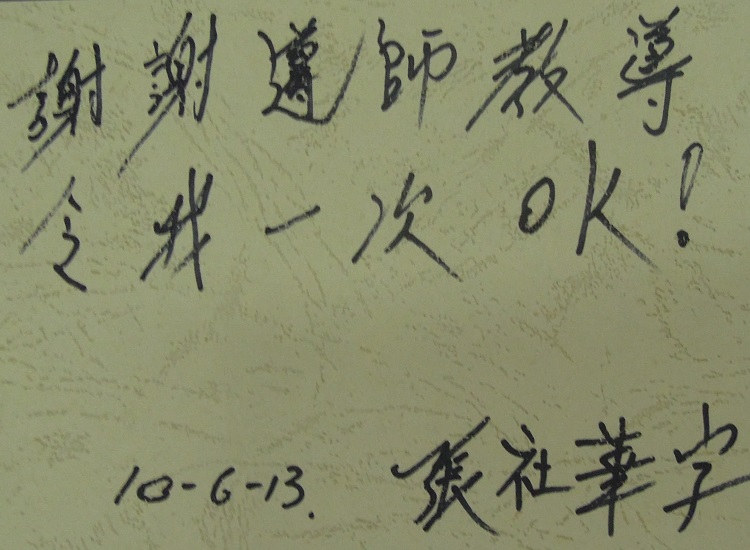 謝謝導師教導
令我一次OK!
10-6-13.
張社華字